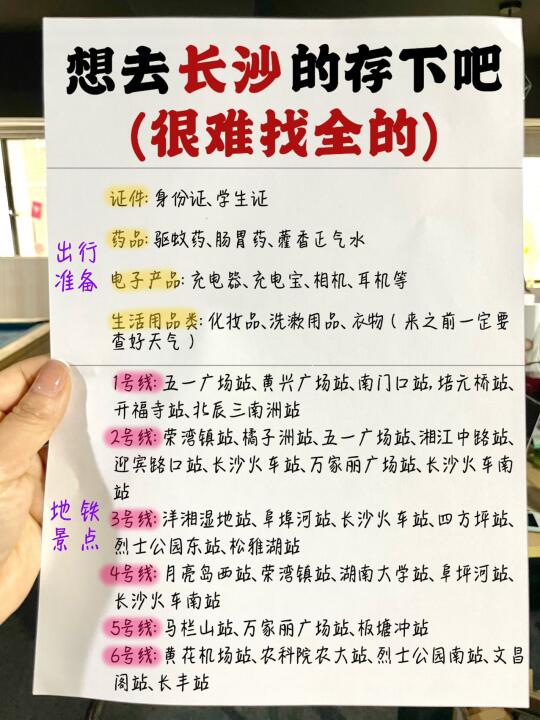 想去长沙的存下吧
(很难找全的)
出行
准备
证件: 身份证、学生证
药品: 驱蚊药、肠胃药、藿香正气水
电子产品: 充电器、充电宝、相机、耳机等
生活用品类: 化妆品、洗漱用品、衣物 ( 来之前一定要
查好天气 )
地铁
景点
1号线: 五一广场站、黄兴广场站、南门口站, 培元桥站、
开福寺站、北辰三南洲站
2号线: 荣湾镇站、橘子洲站、五一广场站、湘江中路站、
迎宾路口站、长沙火车站、万家丽广场站、长沙火车南
站
3号线: 洋湘湿地站、阜埠河站、长沙火车站、四方坪站、
烈士公园东站、松雅湖站
4号线: 月亮岛西站、荣湾镇站、湖南大学站、阜坪河站、
长沙火车南站
5号线: 马栏山站、万家丽广场站、板塘冲站
6号线: 黄花机场站、农科院农大站、烈士公园南站、文昌
阁站、长丰站